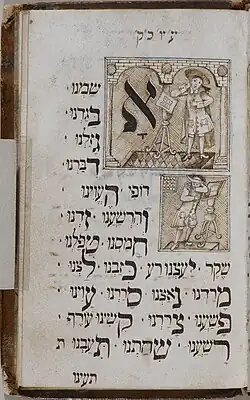 ע י ו כ ק
אָ שמנו·
בגדנו·
גזלנו·
דברנו
דופי העוינו
והרשענו· זדנו·
חמסנו· טפלנו
שקר· יעצנו רע· כזבנו· לצנו
מרדנו· נאצנו· סררנו· עוינו
פשענו· צררנו· קשינו עורף·
רשענו· שחתנו· תעבנו· ת
תעינו